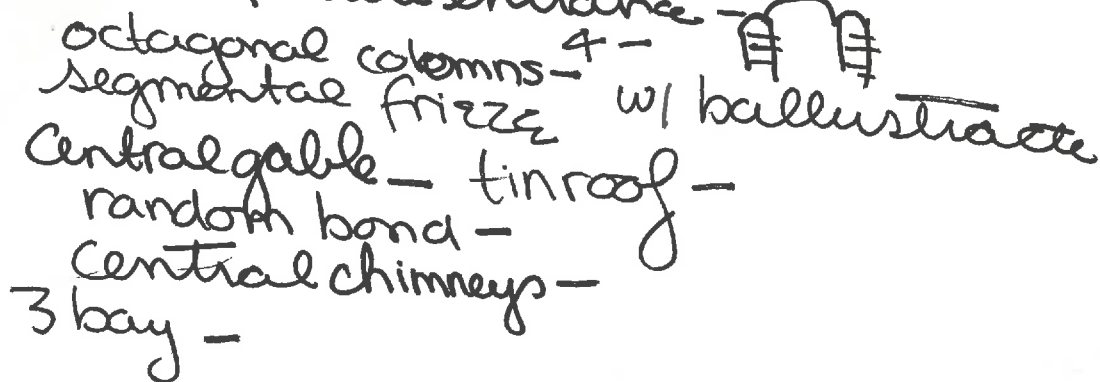 octagonal colomns - 4 -
segmental frizze w/ ballustrade
Central gable - tin roof -
random bond -
central chimneys -
3 bay -